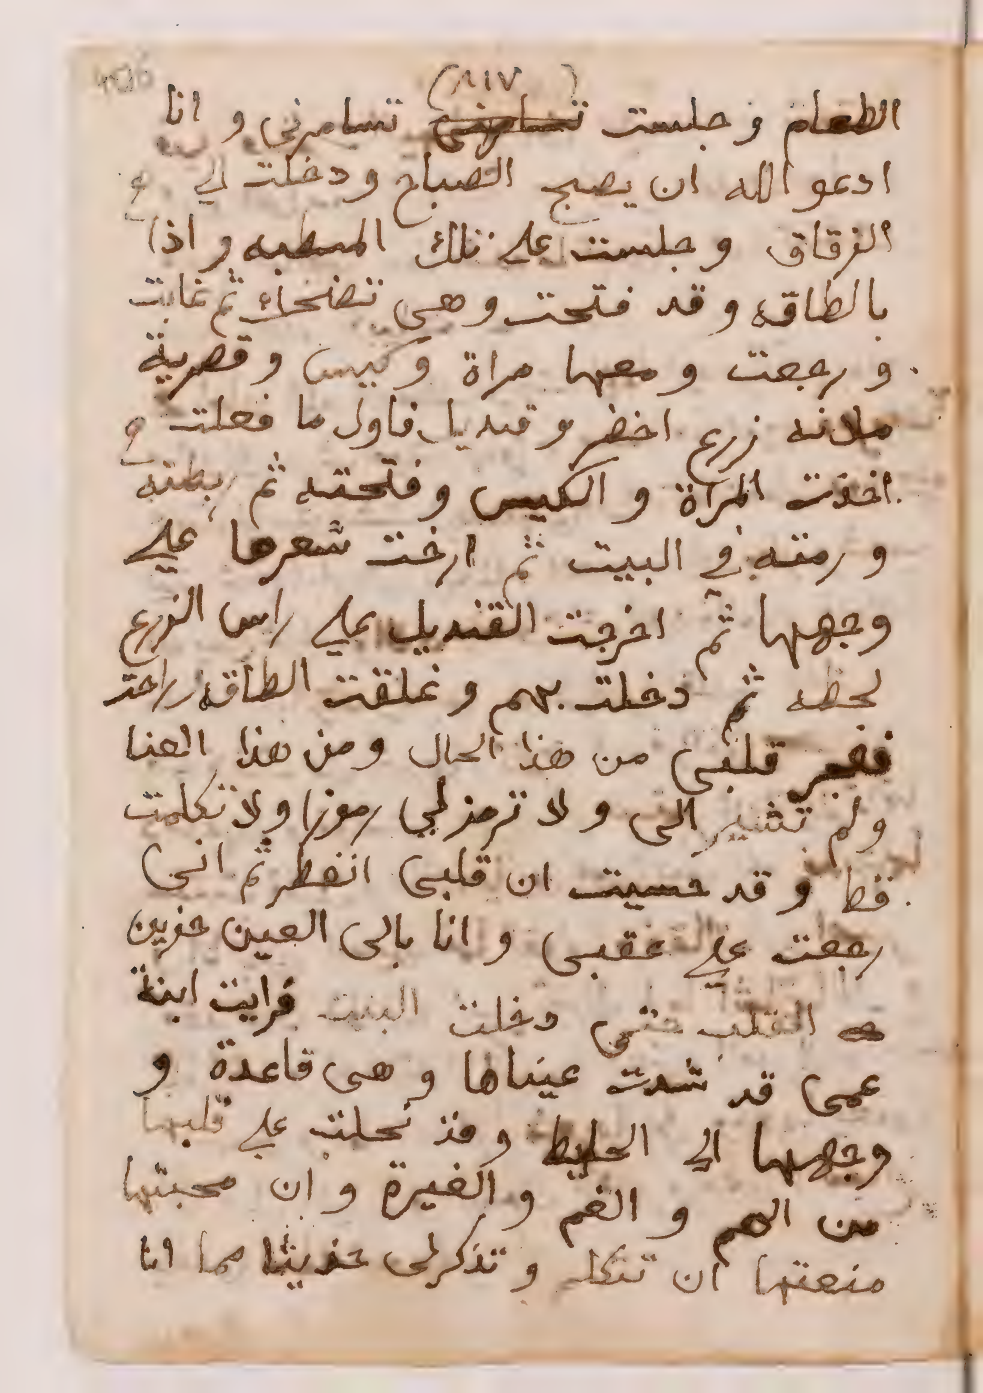 (٨١٧)
الطعام و جلست تسامرنى تسامرنى و انا
ادعو الله ان يصبح الصباح و دخلت الي
الزقاق و جلست على تلك المسطبه و اذا
بالطاقه و قد فتحت و هى تضحك ثم غابت
و رجعت و معها مراة و كيس و قصرية
ملانه زرع اخضر و قنديل فاول ما فعلت
اخذت المراة و الكيس و فتحته ثم ربطته
و رمته في البيت ثم ارخت شعرها على
وجهها ثم اخرجت القنديل على راس الزرع
لحظه ثم دخلت بهم و غلقت الطاقه و راحت
قلبى من هذا الحال و من هذا العنا
و لم تشير الى و لا ترمز لي رموزا و لا تكلمت
قط و قد حسيت ان قلبى انفطر ثم انى
رجعت على عقبى و انا باكى العين حزين
القلب حتى دخلت البيت فرايت ابنة
عمى قد شدت عيناها و هى قاعدة و
وجهها الي الحايط و قد على قلبها
من الهم و الغم و الغيرة و ان محبتها
منعتها ان و تذكر لى حديثا مما انا